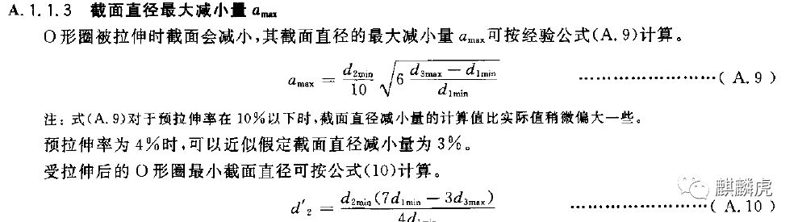 A.1.1.3 截面直径最大减小量 amax
O形圈被拉伸时截面会减小,其截面直径的最大减小量 amax可按经验公式(A.9)计算。
amax = d2min/10 √(6 (d3max − d1min)/d1min) ……………………( A.9 )
注:式(A.9)对于预拉伸率在10%以下时,截面直径减小量的计算值比实际值稍微偏大一些。
预拉伸率为4%时,可以近似假定截面直径减小量为3%。
受拉伸后的O形圈最小截面直径可按公式(10)计算。
d′2 = d2min(7d1min − 3d3max)/4d1min ……………………( A.10 )
麒麟虎